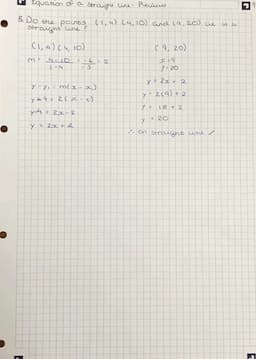 Equation of a Straight Line - Previous
5. Do the points (1, 4) (4, 10) and (9, 20) lie in a
straight line?
(1, 4) (4, 10)
m = 4 - 10 = -6 = 2
1 - 4 -3
y - y₁ = m(x - x₁)
y - 4 = 2(x - 1)
y - 4 = 2x - 2
y = 2x + 2
(9, 20)
x = 9
y = 20
y = 2x + 2
y = 2(9) + 2
y = 18 + 2
y = 20
∴ on straight line ✓